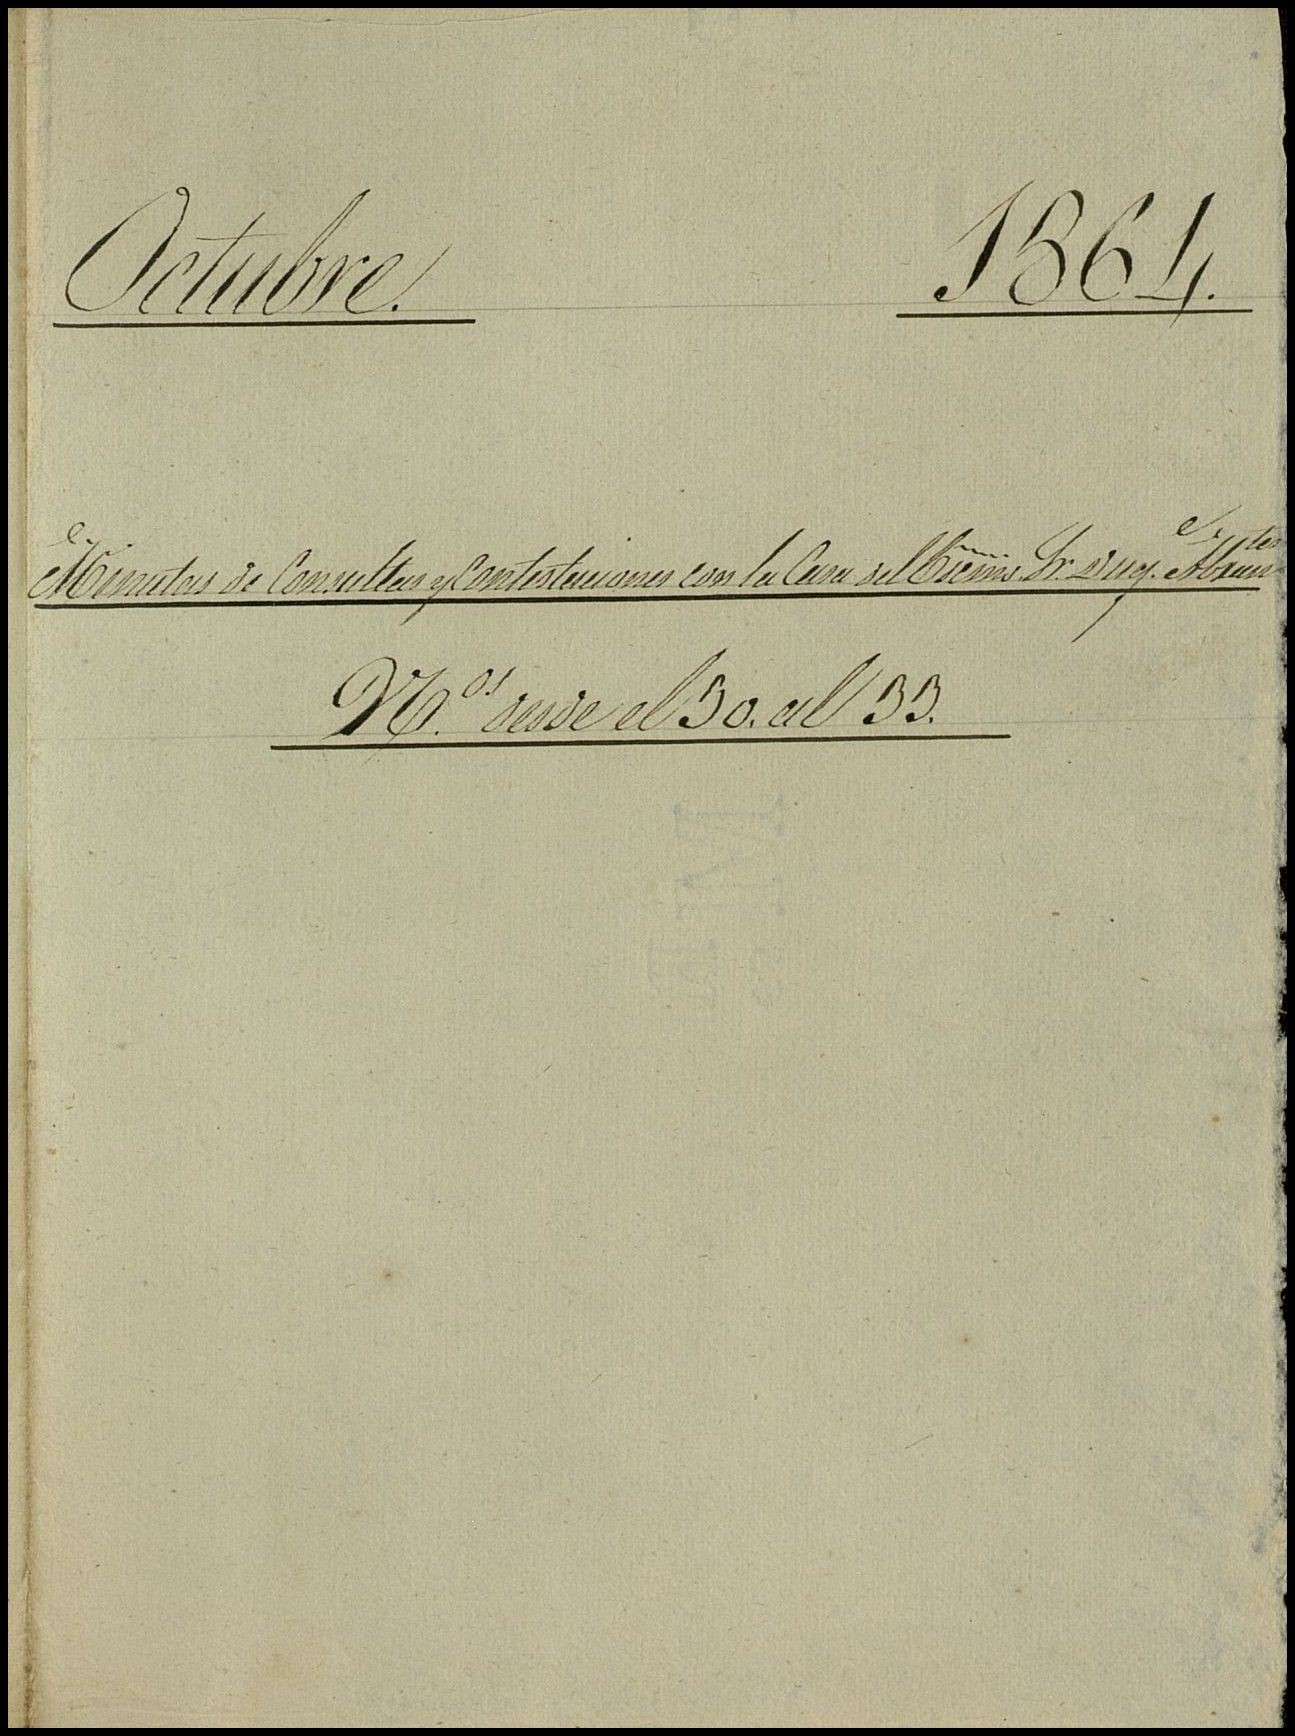 Octubre. 1864.
Minutas de Consultas y Contestaciones con la Casa del Excmo. Sr. Duq.e Abrantes
N.os desde el 30. al 33.